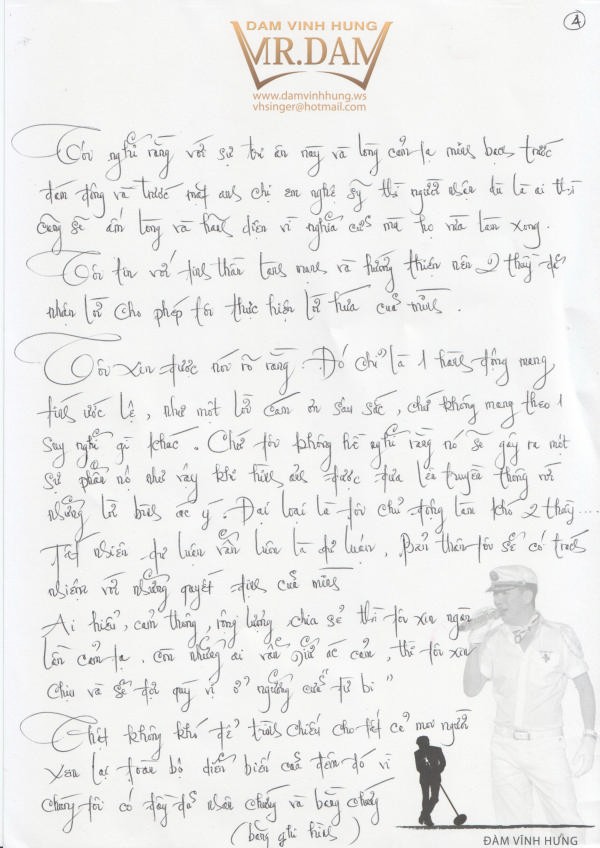 4
DAM VINH HUNG
MR.DAM
www.damvinhhung.ws
vhsinger@hotmail.com
Tôi nghĩ rằng với sự tri ân này và lòng cảm tạ minh bạch trước
đám đông và trước mặt anh chị em nghệ sỹ thì người nhận dù là ai thì
cũng sẽ ấm lòng và hãnh diện vì nghĩa cử mà họ vừa làm xong.
Tôi tin với tinh thần và hướng thiện nên 2 thầy đã
nhận lời cho phép tôi thực hiện lời hứa của mình.
Tôi xin được nói rõ ràng. Đó chỉ là 1 hành động mang
tính ước lệ, như một lời cám ơn sâu sắc, chứ không mang theo 1
suy nghĩ gì khác. Chứ tôi không hề nghĩ rằng nó sẽ gây ra một
sự phẫn nộ như vậy khi hình ảnh được đưa lên truyền thông với
những lời bình ác ý. Đại loại là tôi chủ động làm khó 2 thầy....
Tất nhiên dư luận vẫn luôn là dư luận, bản thân tôi sẽ có trách
nhiệm với những quyết định của mình
Ai hiểu, cảm thông, rộng lượng, chia sẻ thì tôi xin ngàn
lần cảm tạ. Còn những ai vẫn giữ ác cảm, thì tôi xin
chịu và sẽ đợi quý vị ở ngưỡng cửa từ bi"
Thật không khó để trình chiếu cho tất cả mọi người
xem lại toàn bộ diễn biến của đêm đó vì
chúng tôi có đầy đủ nhân chứng và bằng chứng
(băng ghi hình)
ĐÀM VĨNH HƯNG